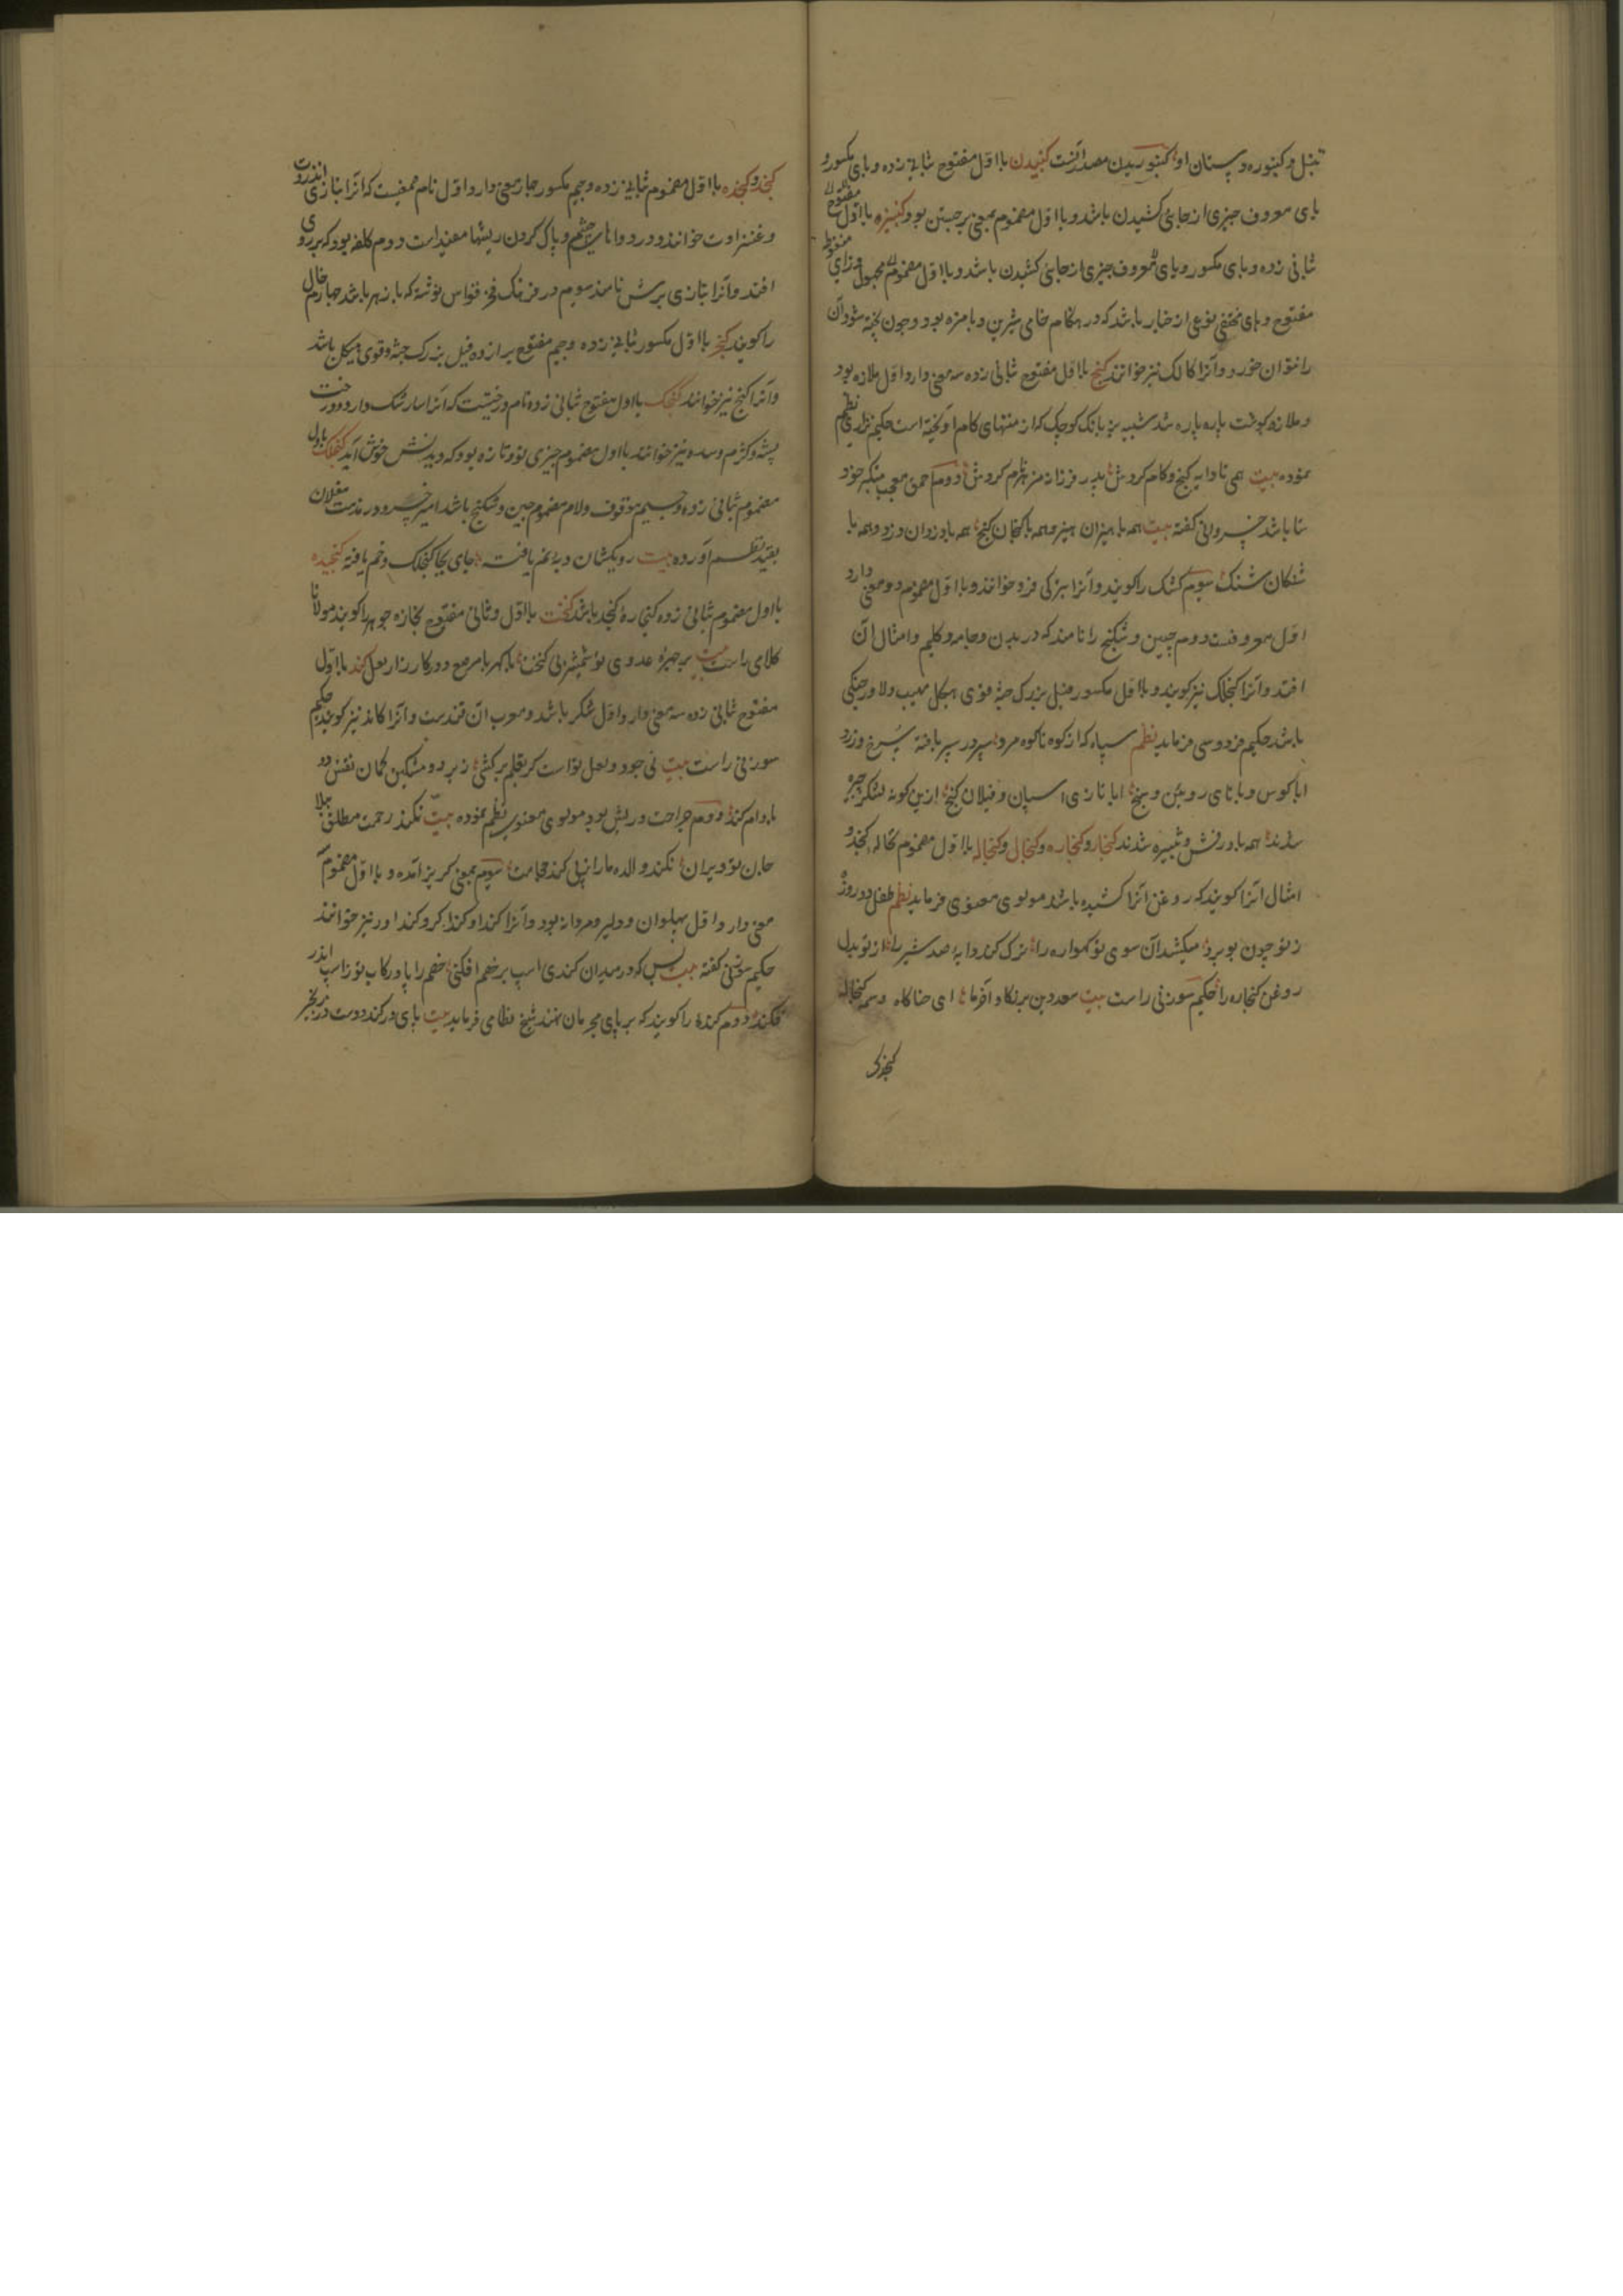 تنبل و کنبوره و پستان او کنبوریدن مصدر آنست کنبیدن با اول مفتوح بثانی زده و بای مکسور و
یای معروف چیزی از جایی کشیدن باشد و با اول مضموم بمعنی برجستن بود کنبیزه با اول مفتوح
ثانی زده و بای مکسور و یای معروف چیزی از جایی کشیدن باشد و با اول مضموم مجهول و زای منقوط
مفتوح و های مختفی نوعی از خیار باشد که در هنگام خامی شیرین و بامزه بود و چون پخته شود آن
را نتوان خورد و آنرا کالک نیز خوانند کنج با اول مفتوح ثانی زده سه معنی دارد اول ملازه بود
و ملازه گوشت پاره باشد شبیه بزبانک کوچک که از منتهای کام آویخته است حکیم نزاری نظم
نموده بیت همی تا دایه کنج و کام کردش پدر فرزانه مرد نام کردش دوم احمق معجب متکبر خود
ستا باشد خسروانی گفته بیت همه با هیزان هیز و همه با کنجان کنج همه با دزدان دزد و همه با
شنکان شنک سوم کشک را کویند و آنرا بترکی قروخوانند و با اول مضموم دو معنی دارد
اول معروفست دوم چین و شکنج را نامند که در بدن و جامه و گلیم و امثال آن
افتد و آنرا کنجلک نیز کویند و با اول مکسور فیل بزرک جثه قوی هیکل مهیب دلاور جنکی
باشد حکیم فردوسی فرماید نظم سپاه که از کوه تا کوه مرد سپر در سپر بافته سرخ و زرد
ابا کوس و با نای رویین و سنج ابا تازی اسپان و فیلان کنج ازین کونه لشکر
همه با درفش و تبیره شدند کنجار و کنجاره و کنجال و کنجاله با اول مضموم نخاله کنجد و
امثال آنرا کویند که روغن آنرا کشیده باشد مولوی معنوی فرماید نظم طفل دو روزه
ز تو چون بو برد میکشد آن سوی تو کهواره را ترک کند دایه و صد شیر را از تو بدل
روغن کنجاره را حکیم سوزنی راست بیت سعد دین برنکا و آفرما ای حنا کاه وسمه کنجاله
کنجدک
کنجد و کنجده با اول مضموم بثانی زده و جیم مکسور چهار معنی دارد اول نام صمغیست که آنرا بتازی انزروت
و عنزروت خوانند و در دواها چشم و پاک کردن ریشها مفید است دوم کلفه بود که بر روی
افتد و آنرا بتازی برش نامند سوم در فرهنک فخر قواس نوشته که پازهر باشد چهارم خال
را کویند کنجر با اول مکسور بثانی زده و جیم مفتوح برا زده فیل بزرک جثه و قوی هیکل باشد
و آنرا کنج نیز خوانند کنجک با اول مفتوح ثانی زده نام درختیست که آنرا سارشک دارد و درخت
پشه و کژم و سده نیز خوانند با اول مضموم چیزی نو و تازه بود که دیدنش خوش آید کنجلک با اول
مضموم ثانی زده و جیم موقوف و لام مضموم چین و شکنج باشد امیر خسرو در مذمت مغلان
بقید نظم آورده بیت رویکشان دبه نم یافته جای بجا کنجلک و خم یافته کنجیده
با اول مضموم ثانی زده کنجاره کنجد باشد کنخت با اول و ثانی مفتوح بخا زده جوهر را کویند مولانا
کلامی راست بیت بر چهره عدوی تو شمشیر بی کنخت با کهربا مرصع در کارزار لعل کند با اول
مفتوح ثانی زده سه معنی دارد اول شکر باشد و معرب آن قندست و آنرا کاند نیز کویند حکیم
سوزنی راست بیت نی جود و لعل تواست کر بقلم برکشی زیر دو مشکین کمان نقش دو
بادام کند دوم جراحت و ریش بود مولوی معنوی نظم نموده بیت نکند رحمت مطلق ببلا
جان تو ویران نکند والده مارا ز پی کند حجامت سوم بمعنی کریز آمده و با اول مضموم
معنی دارد اول پهلوان و دلیر و مردانه بود و آنرا کنداو کندا کر و کنداور نیز خوانند
حکیم سوزنی گفته بیت بس که در میدان کندی اسپ بر خصم افکنی خصم را پا در رکاب تو ز اسپ اندر
فکند دوم کنده را کویند که بر پای مجرمان نهند شیخ نظامی فرماید بیت پای در کند دست در زنجیر